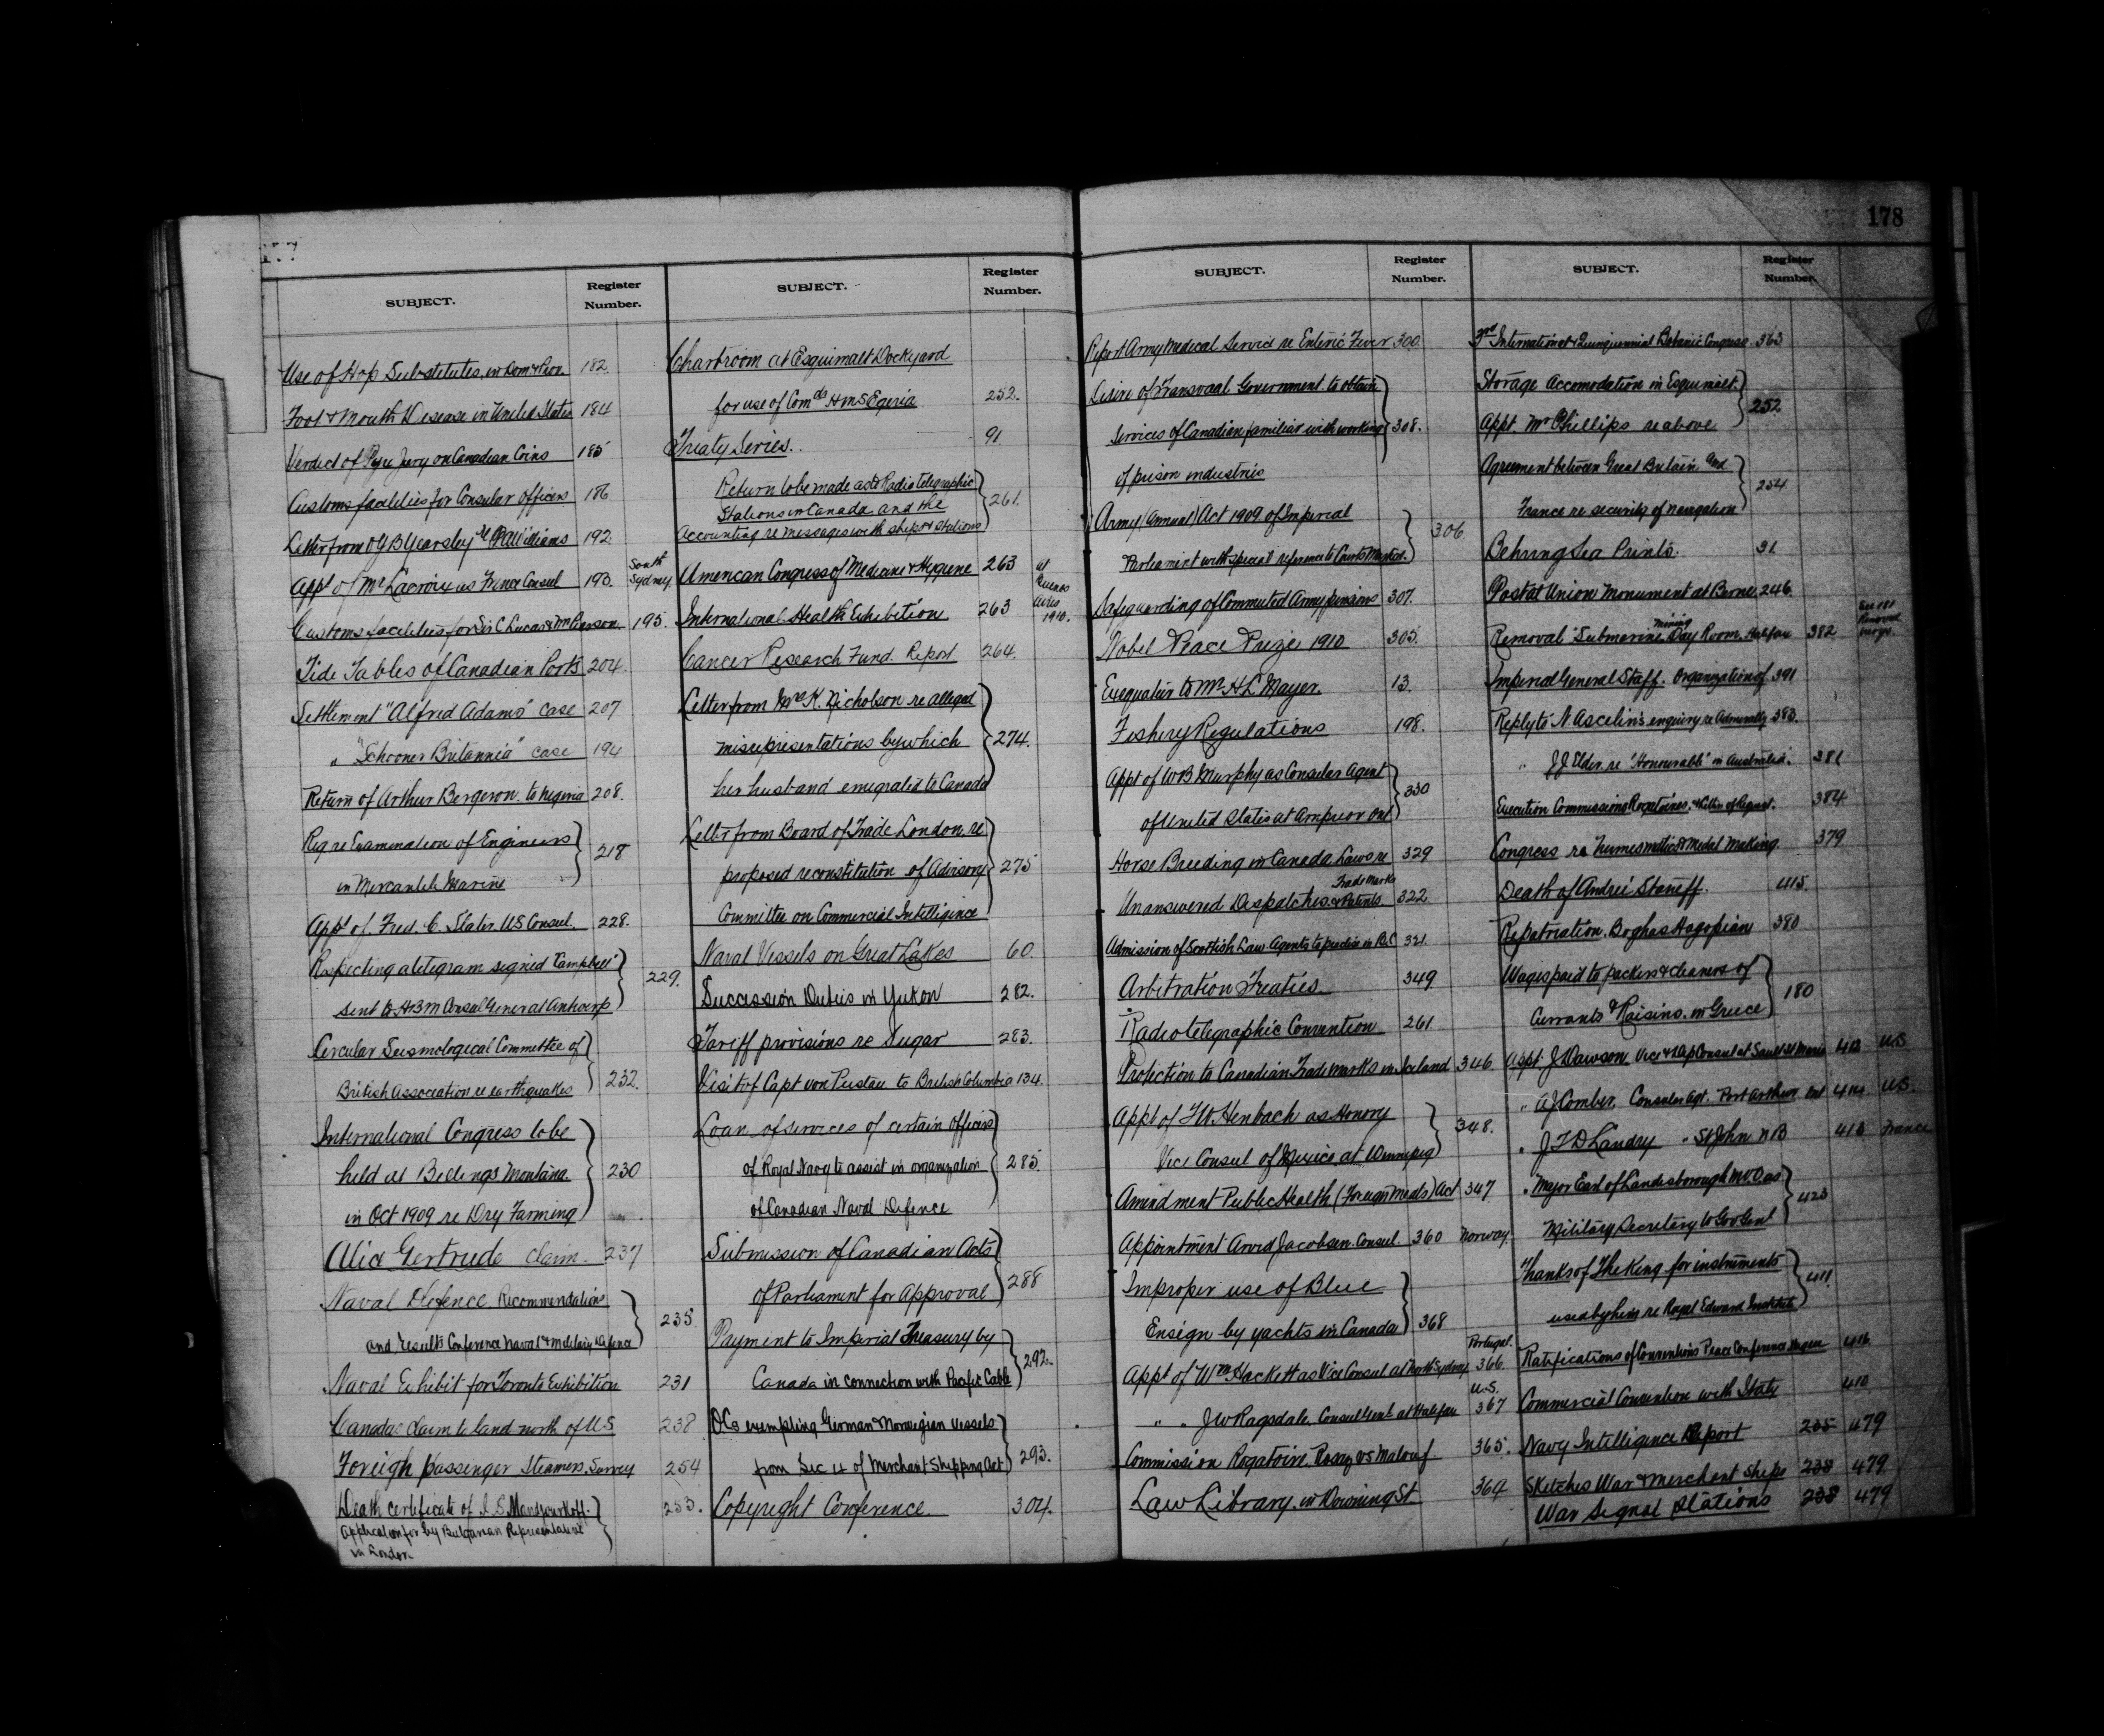 178
SUBJECT.
Register
Number.
Use of Hop Substitutes, in Dom &
182
Foot & Mouth Disease in United States 184
Verdict of Pyx Jury on Canadian Coins 185
Customs facilities for Consular Officers 186
Letter from O B Yearsley re Williams 192
Appt of Mr Lacroix as France Consul 193. South Sydney
Customs facilities for Sir C Lucas & Mr Pearson 195.
Tide Tables of Canadian Ports 204.
Settlement "Alfred Adams" case 207
" "Schooner Britannia" case 194
Return of Arthur Bergeron to Nigeria 208.
Reg re Examination of Engineers
in Mercantile Marine
218
Appt of Fred. C. Slater U.S Consul. 228.
Respecting a telegram signed "Campbell"
sent to H B M Consul General Antwerp
229.
Circular Seismological Committee of
British Association re earthquakes
232.
International Congress to be
held at Billings Montana
in Oct 1909 re Dry Farming
230
Alice Gertrude claim. 237
Naval Defence Recommendations
and results Conference Naval & Military Defence
235.
Naval Exhibit for Toronto Exhibition 231
Canadas claim to land north of US 238
Foreign passenger Steamers. Survey 254
Death certificate of I. S.
253.
Application for by Bulgarian Representative
in London
SUBJECT.
Register
Number.
Chartroom at Esquimalt Dockyard
for use of Comdr HMS Egeria
252.
Treaty Series. 91
Return to be made as to Radiotelegraphic
Stations in Canada and the
Accounting re messages with ships & stations
261.
American Congress of Medicine & Hygiene 263
at Buenos Aires 1910.
International Health Exhibition 263
Cancer Research Fund. Report 264.
Letter from Mrs K. Nicholson re alleged
misrepresentations by which
her husband emigrated to Canada
274.
Letter from Board of Trade London re
proposed reconstitution of Advisory
Committee on Commercial Intelligence
275
Naval Vessels on Great Lakes 60.
Succession Duties in Yukon 282.
Tariff provisions re Sugar 283.
Visit of Capt von Pustau to British Columbia 134.
Loan of services of certain Officers
of Royal Navy to assist in organization
of Canadian Naval Defence
285.
Submission of Canadian Acts
of Parliament for Approval
288
Payment to Imperial Treasury by
Canada in connection with Pacific Cable
292.
OCs exempting German & Norwegian Vessels
from Sec 4 of Merchant Shipping Act
293.
Copyright Conference. 304.
SUBJECT.
Register
Number.
Report Army Medical Service re Enteric Fever 300
Desire of Transvaal Government to obtain
Services of Canadian familiar with working
of prison industries
308.
Army (Annual) Act 1909 of Imperial
Parliament with special reference to Courts Martial.
306
Safeguarding of Commuted Army pensions 307.
Nobel Peace Prize 1910 305.
Exequatur to Mr H L Mayer. 13.
Fishery Regulations 198.
Appt of W B Murphy as Consular Agent
of United States at Arnprior Ont
330
Horse Breeding in Canada Laws re 329
Unanswered Despatches Trade Marks & Patents 322
Admission of Scottish Law Agents to practice in B.C 321.
Arbitration Treaties. 349.
Radiotelegraphic Convention 261
Protection to Canadian Trade Marks in Iceland 346
Appt of F W. Heubach as Honory
Vice Consul of Mexico at Winnipeg
348.
Amendment Public Health (Foreign Meats) Act 347
Appointment Arvid Jacobsen. Consul. 360 Norway.
Improper use of Blue
Ensign by yachts in Canada
368
Appt of Wm Hackett as Vice Consul at North Sydney 366. Portugal.
" " J W Ragsdale. Consul Genl at Halifax 367 U.S.
Commission Rogatoire. Rosay vs Malouf 365.
Law Library. in Downing St 364
SUBJECT.
Register
Number.
3rd International Quinquennial Botanic Congress 363
Storage Accomodation in Esquimalt.
Appt. Mr Phillips re above
252
Agreement between Great Britain and
France re security of navigation
254
Behring Sea Prints. 31.
Postal Union Monument at Berne 246.
Removal Submarine Mining Day Room. Halifax 382
See 181
Imperial General Staff. Organization of 391
Reply to N Ascelin's enquiry re Admiralty 383.
" J J Elder. re "Honourable" in Australia. 381
Execution Commissions Rogatoires. & Letters of Request. 384
Congress re Numismatic & Medal Making. 379
Death of Andrei Staneff. 415.
Repatriation. Boghas Hagopian 380
Wages paid to packers & cleaners of
Currants & Raisins. in Greece
180
Appt. J Dawson Vice & Dep Consul at Sault St Marie 413 U.S
" A J Comber, Consular Agt. Port Arthur Ont 414 U.S.
" J F D Landry " St John N B 413 France
" Major Earl of Londesborough M V O as
Military Secretary to Gov Genl
423
Thanks of The King for instruments
used by him re Royal Edward Institute
411.
Ratifications of Conventions Peace Conference Hague 416
Commercial Convention with Italy 410
Navy Intelligence Report 235 479
Sketches War & Merchant Ships 238 479
War Signal Stations 238 479